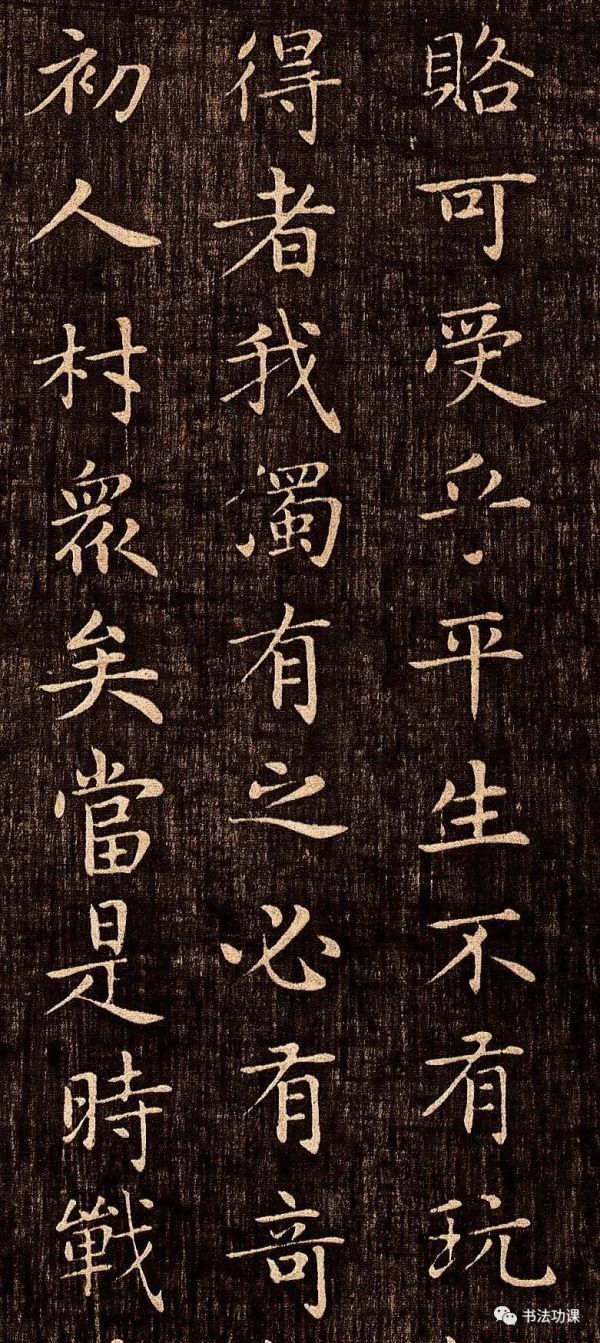 賂可受乎平生不有玩
得者我獨有之必有竒
初人材眾矣當是時戰
书法功课